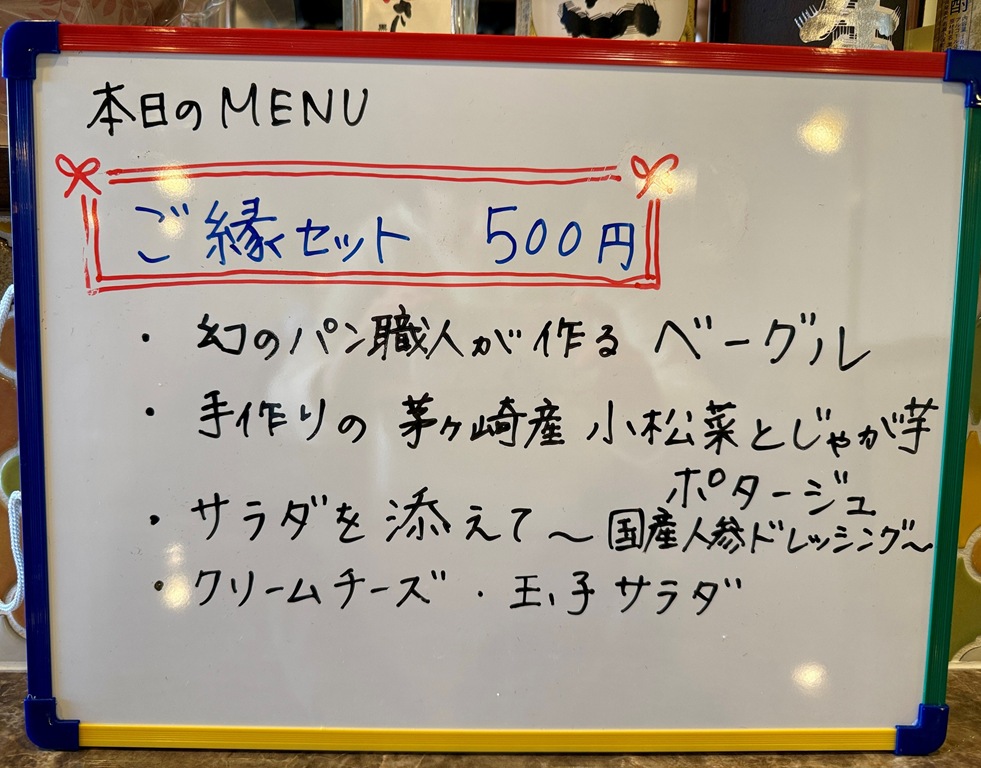 本日のMENU
ご縁セット 500円
・ 幻のパン職人が作る ベーグル
・ 手作りの 茅ヶ崎産 小松菜とじゃが芋
ポタージュ
・ サラダを添えて〜国産人参ドレッシング〜
・ クリームチーズ・玉子サラダ